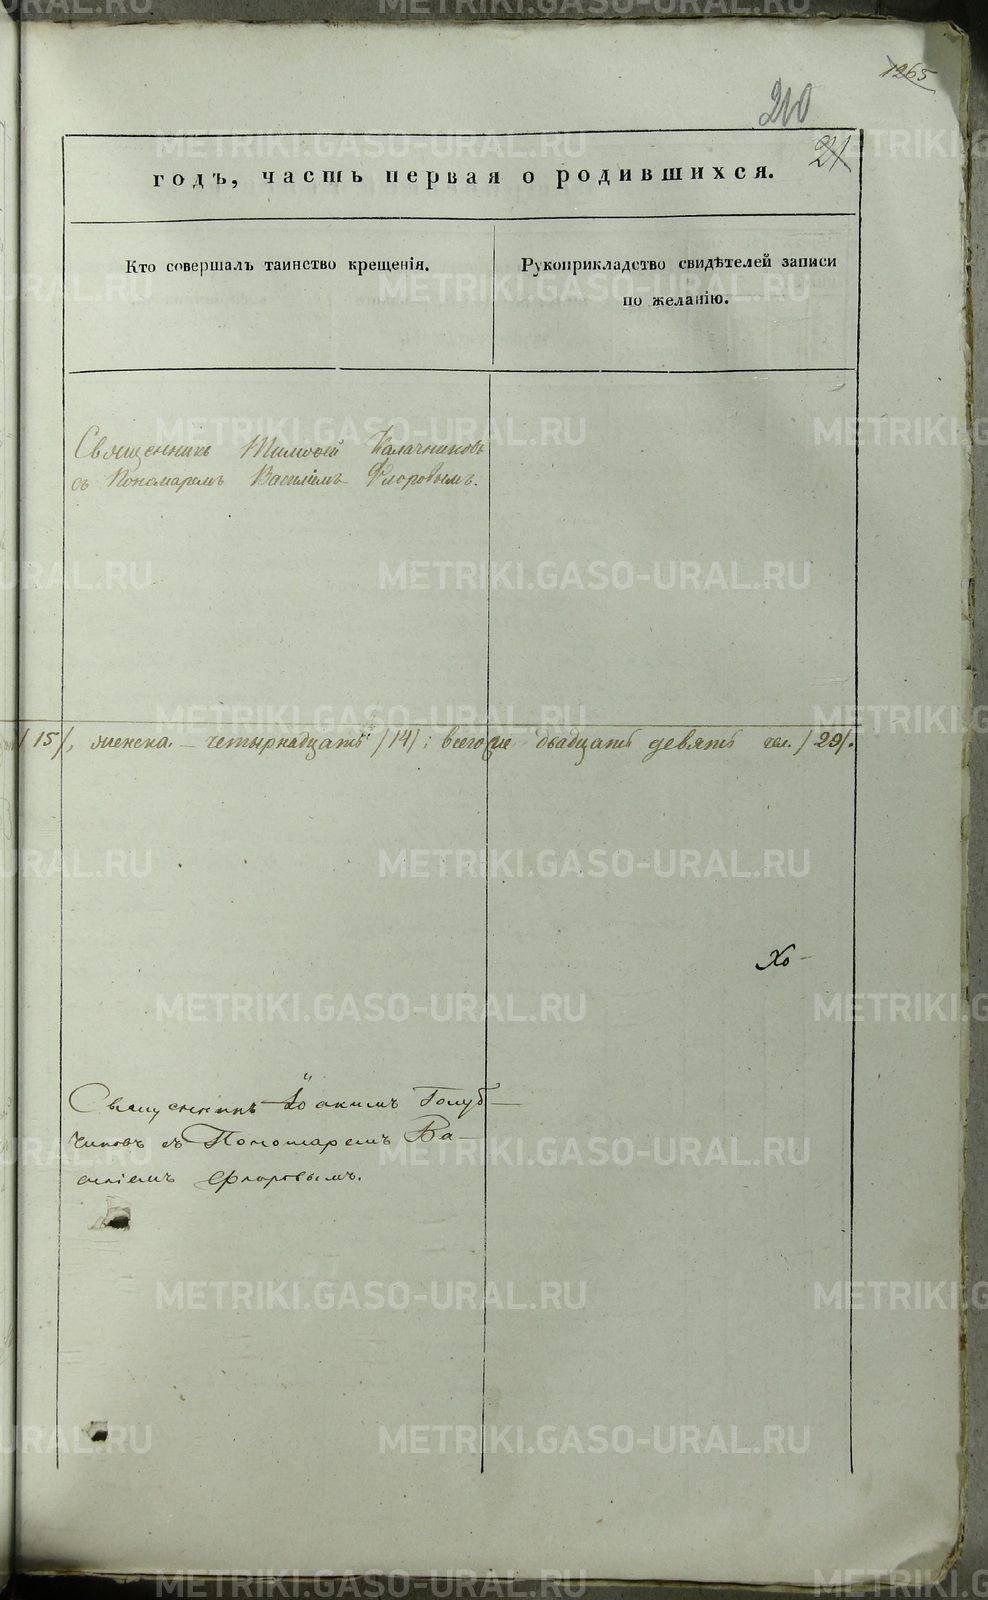 1265
210
21
годъ, часть первая о родившихся.
Кто совершалъ таинство крещенія.
Рукоприкладство свидѣтелей записи
по желанію.
Священникъ Тимофей Калачниковъ
съ Пономаремъ Василіемъ Флоровымъ.
/15/, женска. – четырнадцать /14/; всего же двадцать девять чел. /29/.
Хо-
Священникъ Іоакимъ Голуб-
чиковъ съ Пономаремъ Ва-
силіемъ Флоровымъ.
METRIKI.GASO-URAL.RU